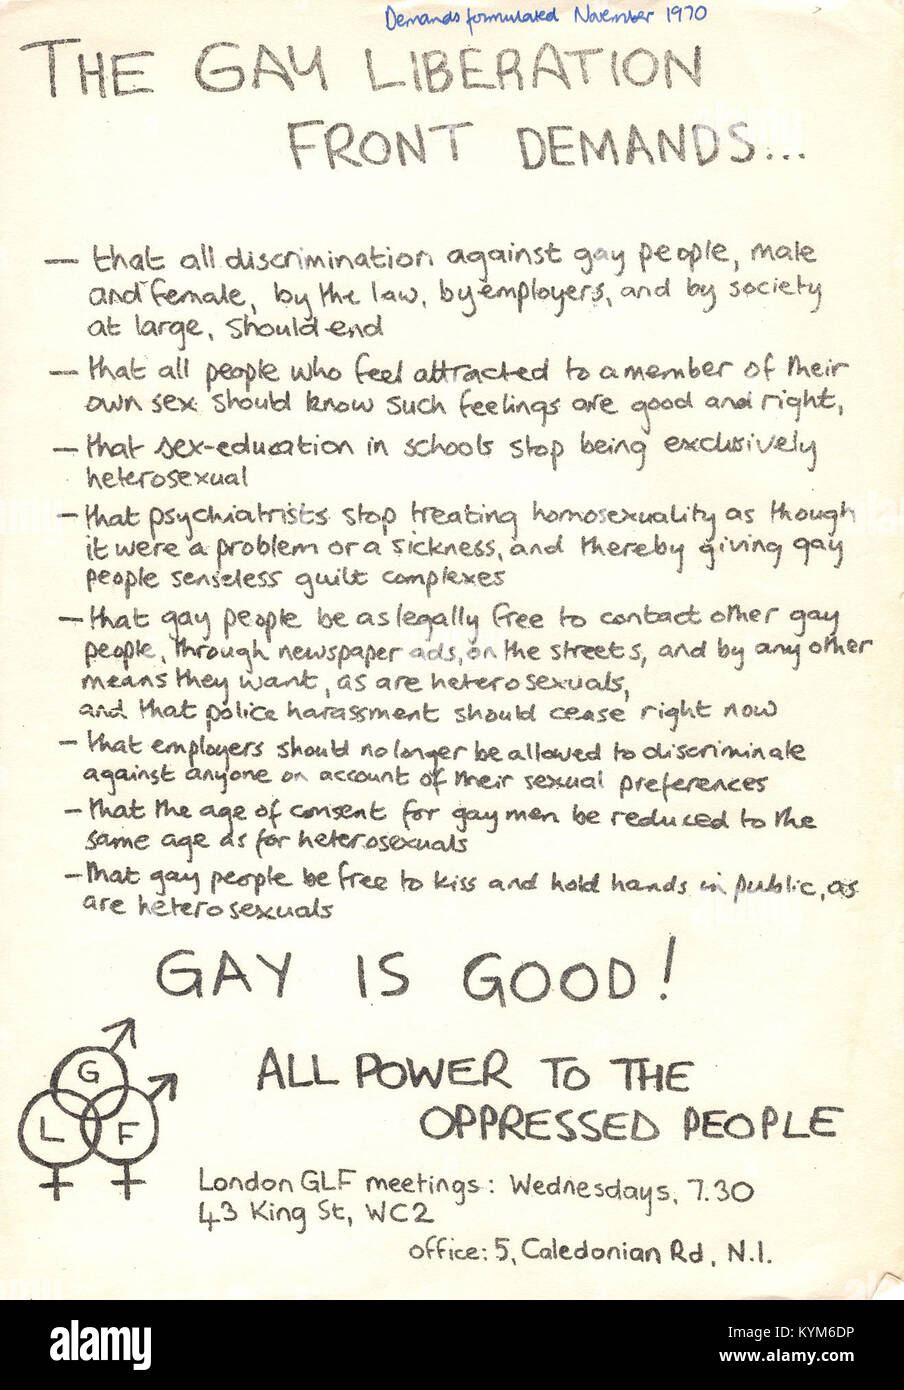 Demands formulated November 1970
THE GAY LIBERATION
FRONT DEMANDS...
— that all discrimination against gay people, male
and female, by the law, by employers, and by society
at large, should end
— that all people who feel attracted to a member of their
own sex should know such feelings are good and right,
— that sex-education in schools stop being exclusively
heterosexual
— that psychiatrists stop treating homosexuality as though
it were a problem or a sickness, and thereby giving gay
people senseless guilt complexes
— that gay people be as legally free to contact other gay
people, through newspaper ads, on the streets, and by any other
means they want, as are heterosexuals,
and that police harassment should cease right now
— that employers should no longer be allowed to discriminate
against anyone on account of their sexual preferences
— that the age of consent for gay men be reduced to the
same age as for heterosexuals
— that gay people be free to kiss and hold hands in public, as
are heterosexuals
GAY IS GOOD!
G
L F
ALL POWER TO THE
OPPRESSED PEOPLE
London GLF meetings: Wednesdays, 7.30
43 King St, WC2
office: 5, Caledonian Rd, N.1.
alamy
Image ID: KYM6DP
www.alamy.com